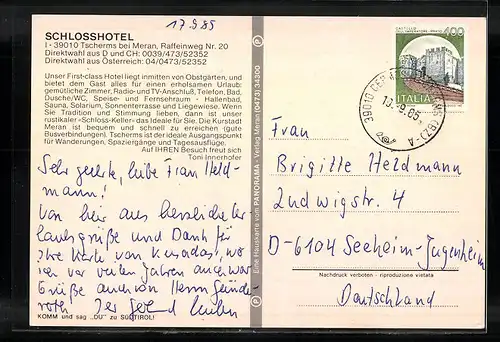 17.9.85
SCHLOSSHOTEL
I - 39010 Tscherms bei Meran, Raffeinweg Nr. 20
Direktwahl aus D und CH: 0039/473/52352
Direktwahl aus Österreich: 04/0473/52352
Unser First-class Hotel liegt inmitten von Obstgärten, und
bietet dem Gast alles für einen erholsamen Urlaub:
gemütliche Zimmer, Radio- und TV-Anschluß, Telefon, Bad,
Dusche/WC, Speise- und Fernsehraum - Hallenbad,
Sauna, Solarium, Sonnenterrasse und Liegewiese. Wenn
Sie Tradition und Stimmung lieben, dann ist unser
rustikaler «Schloss-Keller» das Ideale für Sie. Die Kurstadt
Meran ist bequem und schnell zu erreichen (gute
Busverbindungen). Tscherms ist der ideale Ausgangspunkt
für Wanderungen, Spaziergänge und Tagesausflüge.
Auf IHREN Besuch freut sich
Toni Innerhofer
Sehr geehrte, liebe Frau Held-
mann!
Von hier aus herzliche Ur-
laubsgrüße und Dank für
Ihre Karte von wo
ich vor vielen Jahren auch war
Grüße auch von Herrn
KOMM und sag „DU" zu SÜDTIROL!
Eine Hauskarte vom PANORAMA - Verlag Meran (0473) 34300
400
ITALIA
39010
Frau
Brigitte Heldmann
Ludwigstr. 4
D-6104 Seeheim-Jugenheim
Nachdruck verboten - riproduzione vietata
Deutschland